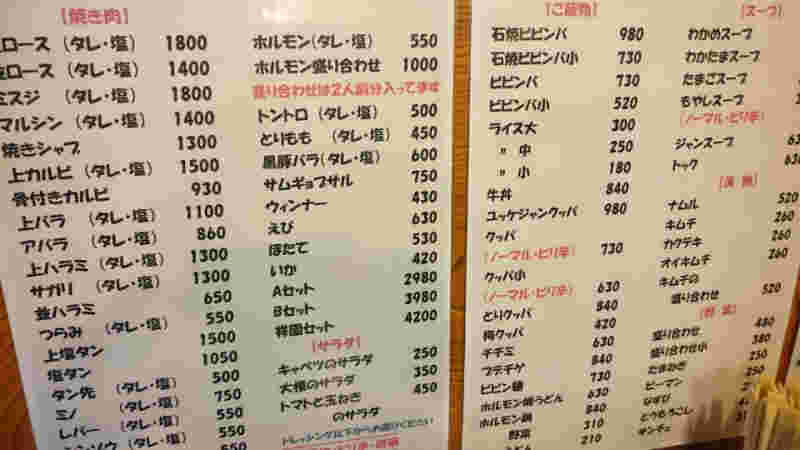 【焼き肉】
ロース（タレ・塩） 1800
ロース（タレ・塩） 1400
ミスジ（タレ・塩） 1800
マルシン（タレ・塩） 1400
焼きシャブ 1300
上カルビ（タレ・塩） 1500
骨付きカルビ 930
上バラ（タレ・塩） 1100
アバラ（タレ・塩） 860
上ハラミ（タレ・塩） 1300
サガリ（タレ・塩） 1300
並ハラミ 650
つらみ（タレ・塩） 550
上塩タン 1500
塩タン 1050
タン先（タレ・塩） 500
ミノ（タレ・塩） 750
レバー（タレ・塩） 550
（タレ・塩） 550
550
ホルモン（タレ・塩） 550
ホルモン盛り合わせ 1000
盛り合わせは2人前分入ってます
トントロ（タレ・塩） 500
とりもも（タレ・塩） 450
黒豚バラ（タレ・塩） 600
サムギョプサル 750
ウィンナー 430
えび 630
ほたて 530
いか 420
Aセット 2980
Bセット 3980
祥園セット 4200
【サラダ】
キャベツのサラダ 250
大根のサラダ 350
トマトと玉ねぎ 450
のサラダ
ドレッシングは下からお選びください
【ご飯物】
石焼ビビンバ 980
石焼ビビンバ小 730
ビビンバ 730
ビビンバ小 520
ライス大 300
〃 中 250
〃 小 180
牛丼 840
ユッケジャンクッパ 980
クッパ
（ノーマル・ピリ辛） 730
クッパ小
（ノーマル・ピリ辛） 630
とりクッパ 840
梅クッパ 420
チヂミ 630
プデチゲ 840
ビビン麺 730
ホルモン焼うどん 630
ホルモン鍋 840
野菜 310
うどん 210
【スープ】
わかめスープ
わかたまスープ
たまごスープ
もやしスープ
（ノーマル・ピリ辛）
ジャンスープ
トック
ナムル 520
キムチ 260
カクテキ 260
オイキムチ 260
キムチの
盛り合わせ 520
【野菜】
盛り合わせ 480
盛り合わせ小 380
たまねぎ 250
ピーマン 250
なすび 250
とうもろこし 250
サンチュ 250